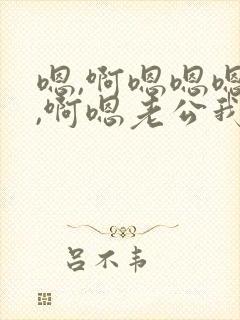 嗯,啊嗯嗯嗯
,啊嗯老公我
吕不韦